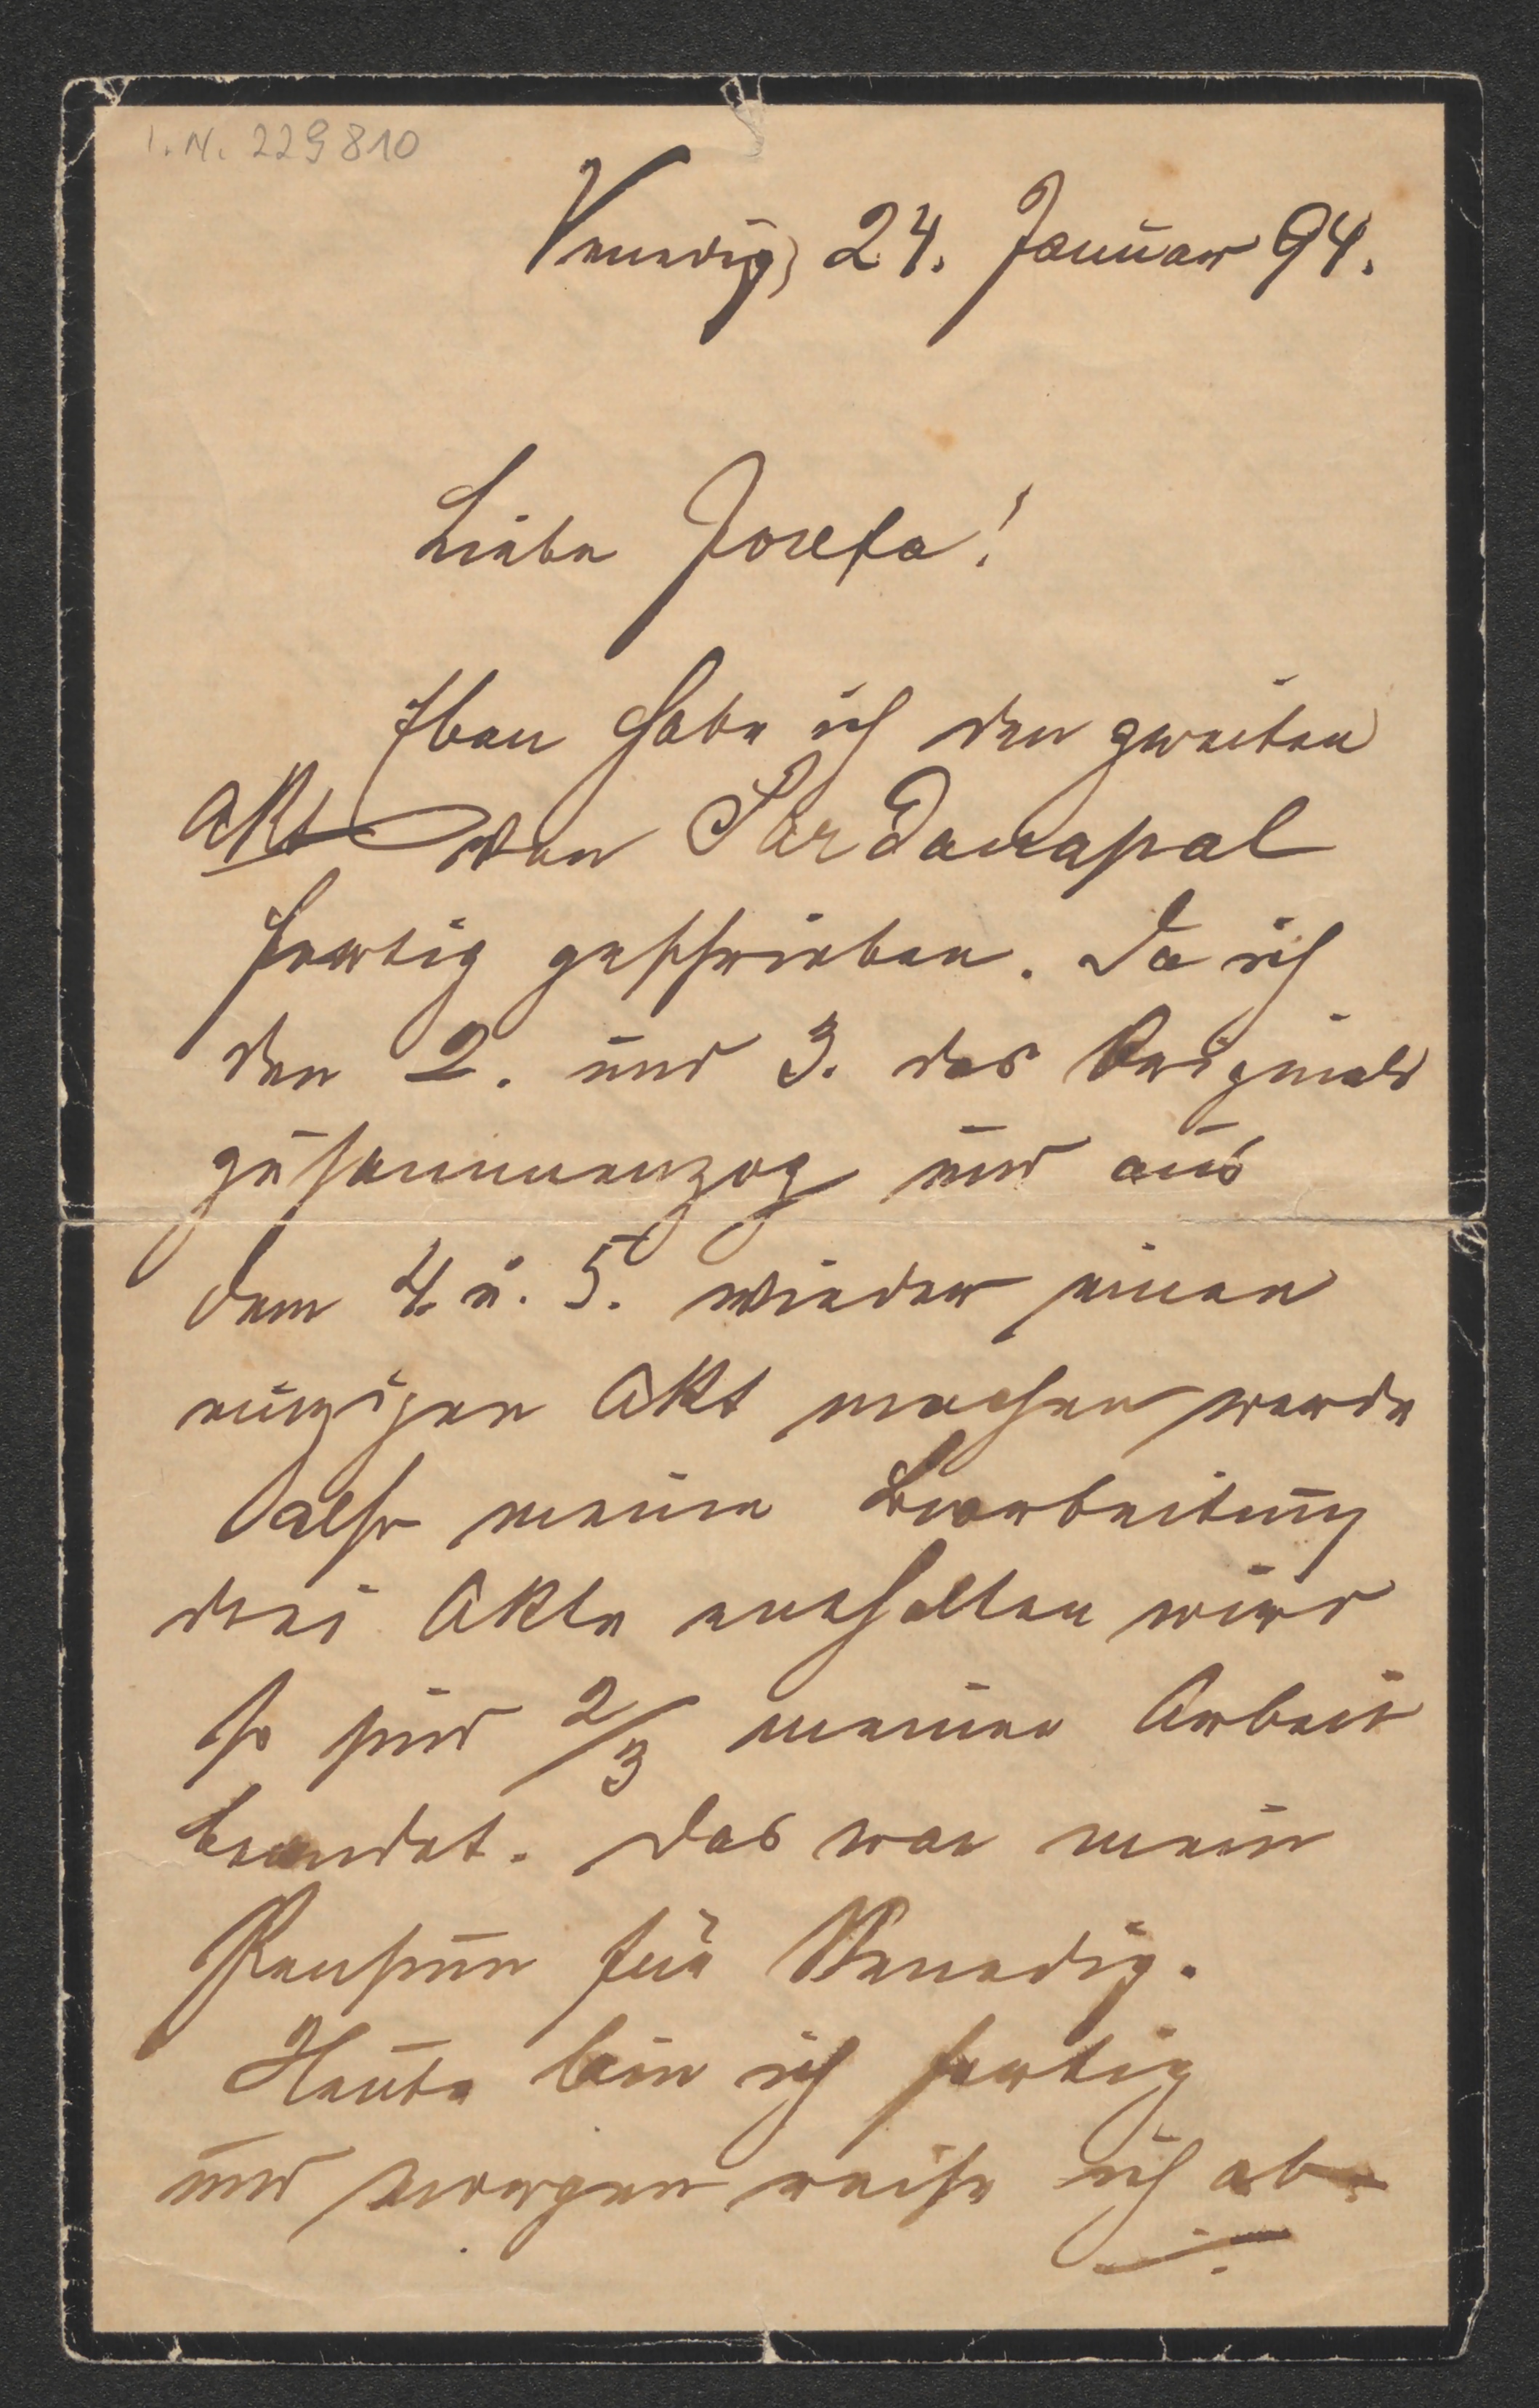 I. N. 229810
Venedig, 24. Januar 94.
Liebe Josefa!
Eben habe ich den zweiten
Akt von Sardanapal
fertig geschrieben. Da ich
den 2. und 3. des Originals
zusammenzog und aus
dem 4. u. 5. wieder einen
einzigen Akt machen werde
also meine Bearbeitung
drei Akte enthalten wird
so sind 2/3 meiner Arbeit
beendet. Das war mein
Pensum für Venedig.
Heute bin ich fertig
und morgen reise ich ab.